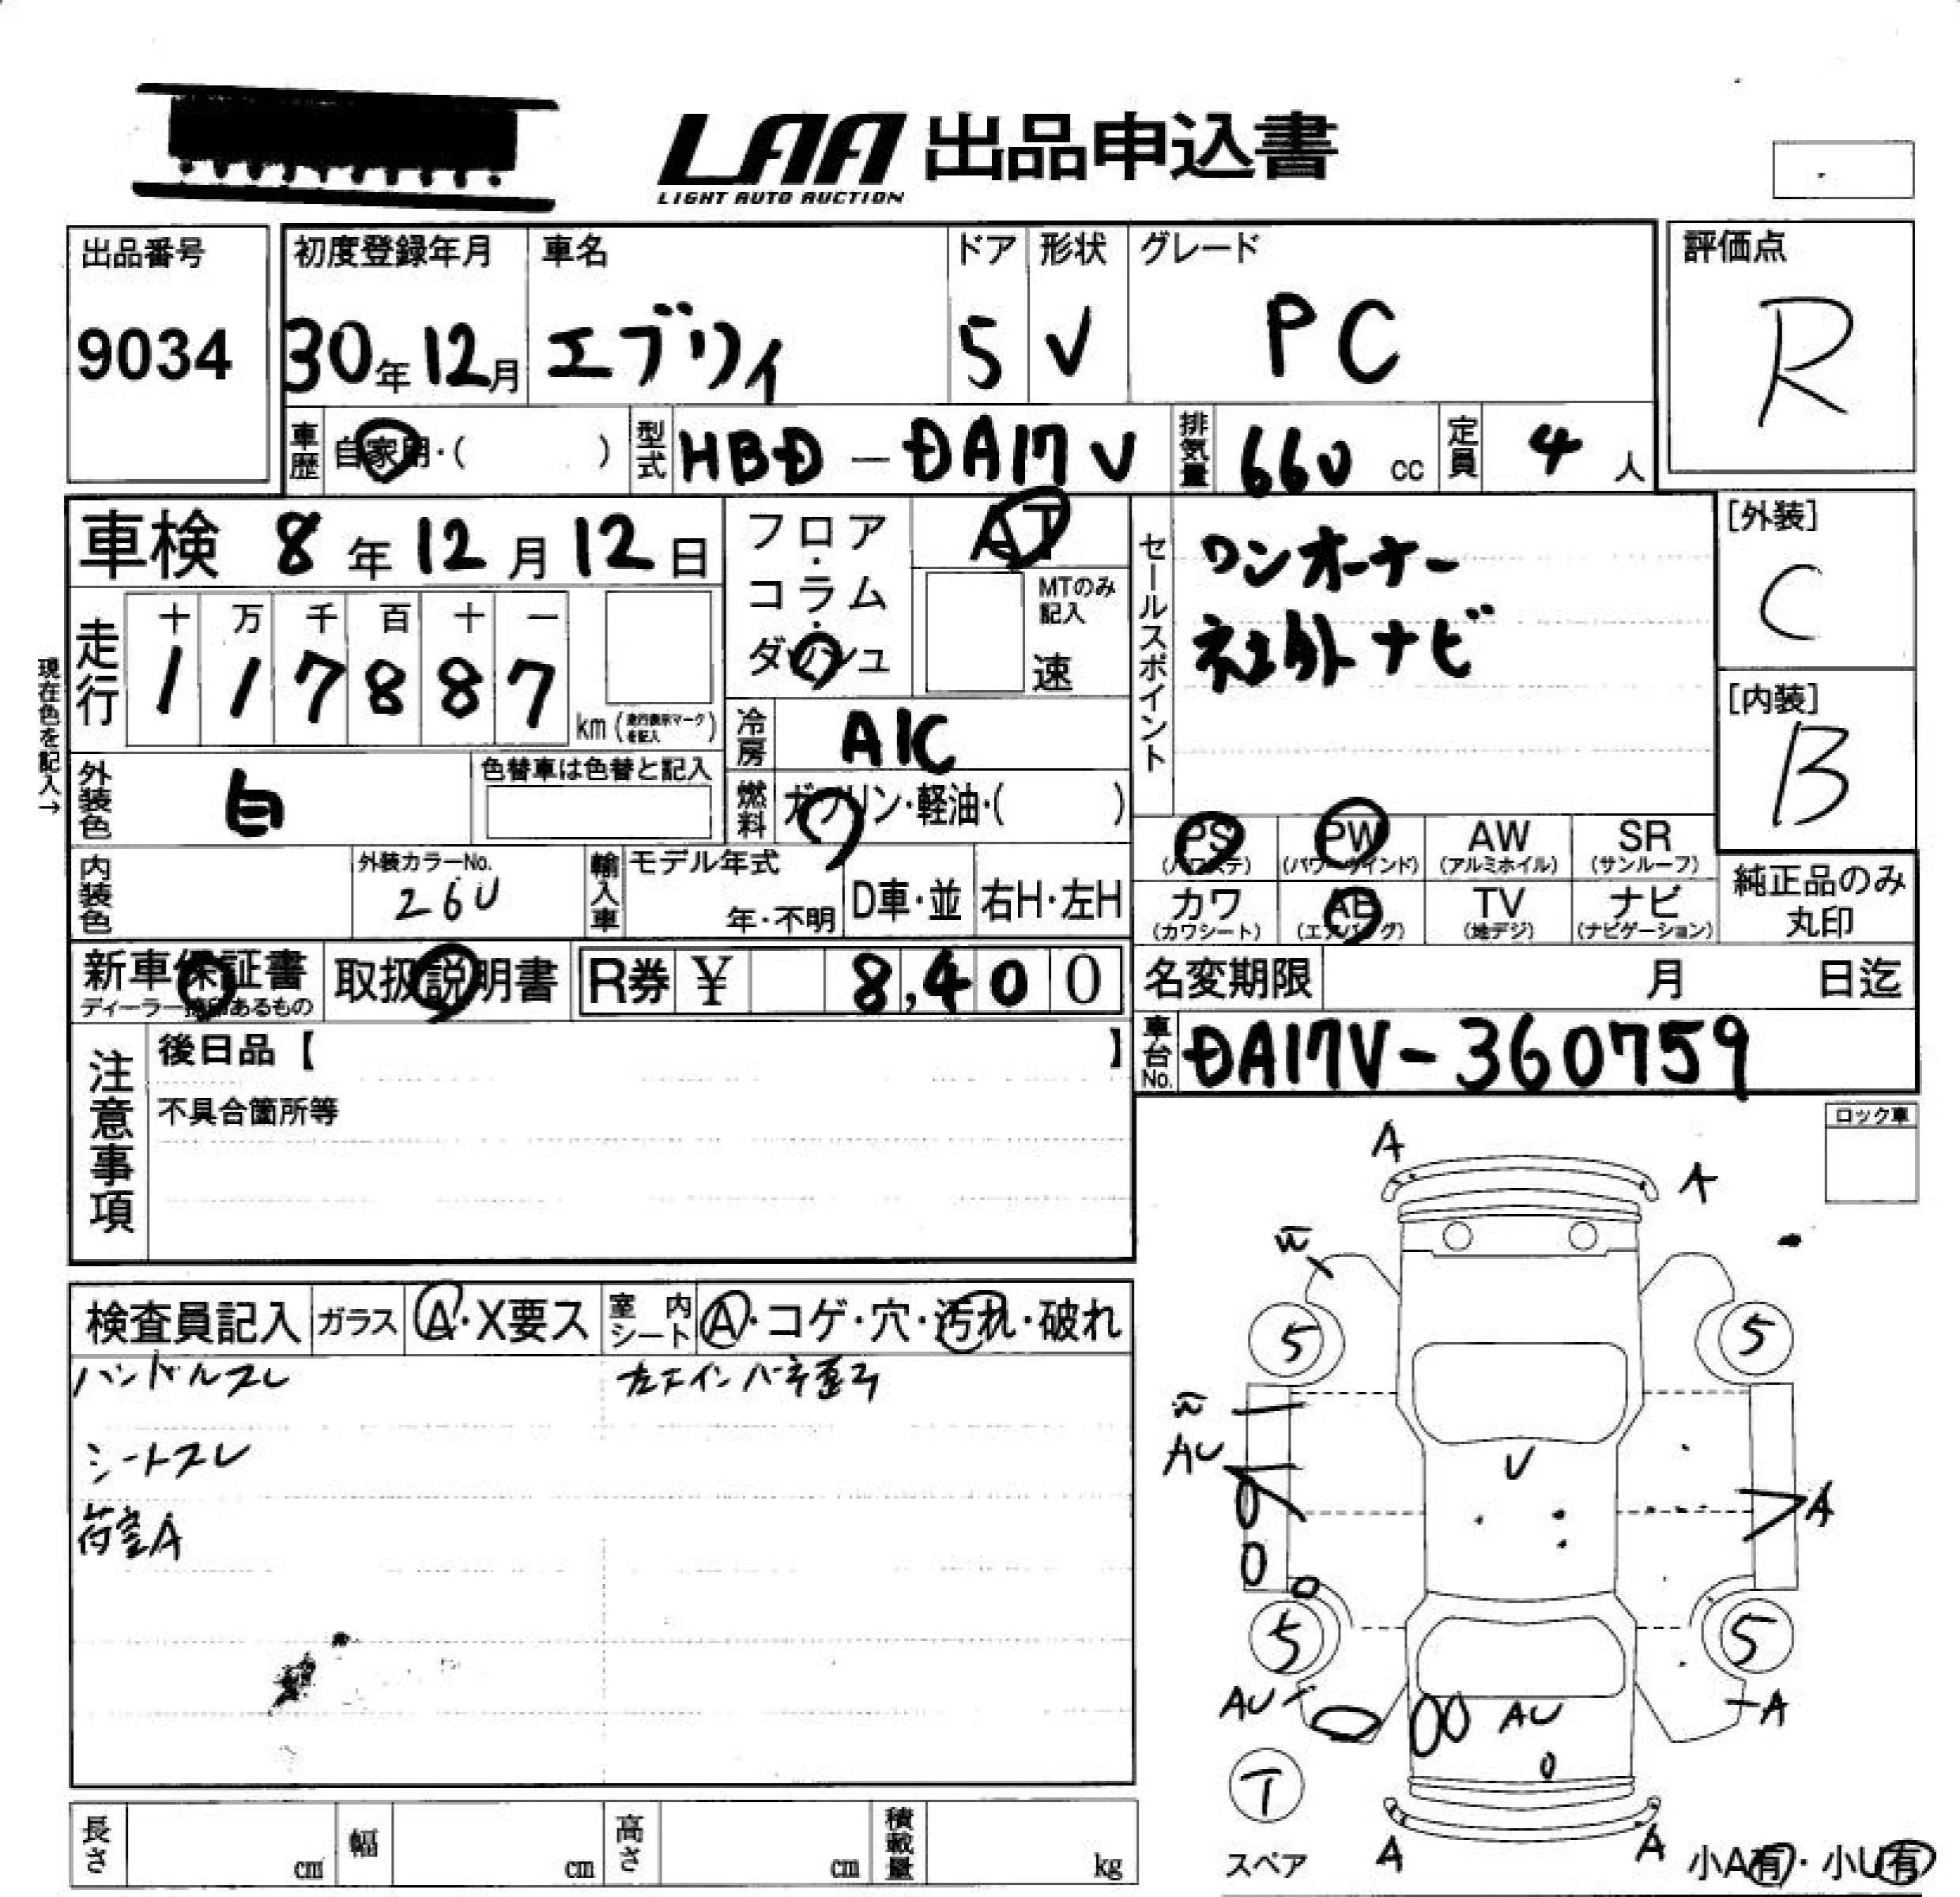 LAA 出品申込書
LIGHT AUTO AUCTION
出品番号
9034
初度登録年月 車名 ドア 形状 グレード
30年12月 エブリイ 5 V PC
評価点
R
車歴 自家用・( ) 型式 HBD-DA17V 排気量 660 cc 定員 4 人
車検 8年12月12日
フロア・コラム・ダッシュ
AT
MTのみ記入
速
セールスポイント
ワンオーナー
社外ナビ
[外装]
C
[内装]
B
現在色を記入→
走行 十 万 千 百 十 一
1 1 7 8 8 7 km (走行表示マークを記入)
冷房 A/C
外装色 白 色替車は色替と記入
燃料 ガソリン・軽油・( )
PS (パワステ) PW (パワーウインド) AW (アルミホイル) SR (サンルーフ)
カワ (カワシート) AB (エアバッグ) TV (地デジ) ナビ (ナビゲーション)
純正品のみ丸印
内装色 外装カラーNo. 26U
輸入車 モデル年式 年・不明 D車・並 右H・左H
新車保証書 ディーラー捺印あるもの
取扱説明書
R券 ¥ 8,400
名変期限 月 日迄
車台No. DA17V-360759
注意事項
後日品【 】
不具合箇所等
ロック車
検査員記入 ガラス A・X要ス 室内シート A・コゲ・穴・汚れ・破れ
ハンドルスレ
シートスレ
荷室A
A A
W
5 5
W
AU
U
A
5 5
AU
AU
A
T
スペア
A A
小A有・小U有
長さ cm 幅 cm 高さ cm 積載量 kg